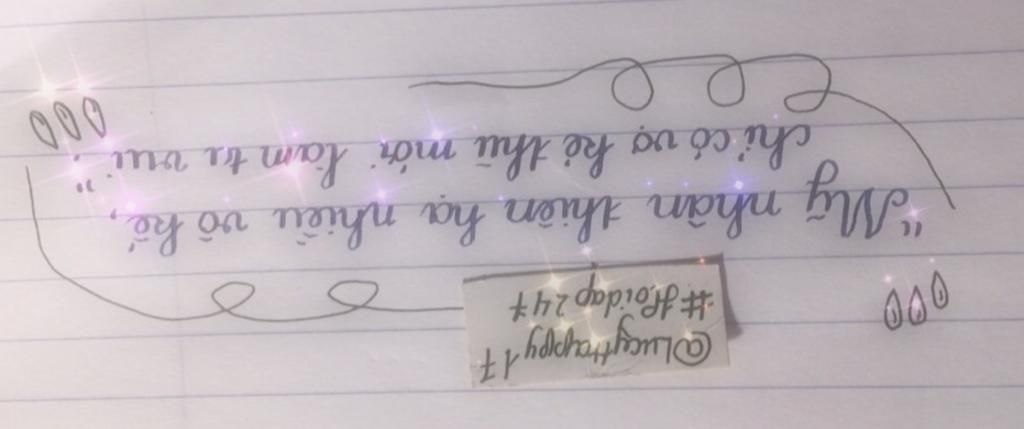 @LucyHappy17
#Hoidap247
"Mỹ nhân thiên hạ nhiều vô kể,
chỉ có vợ kẻ thù mới làm ta vui."